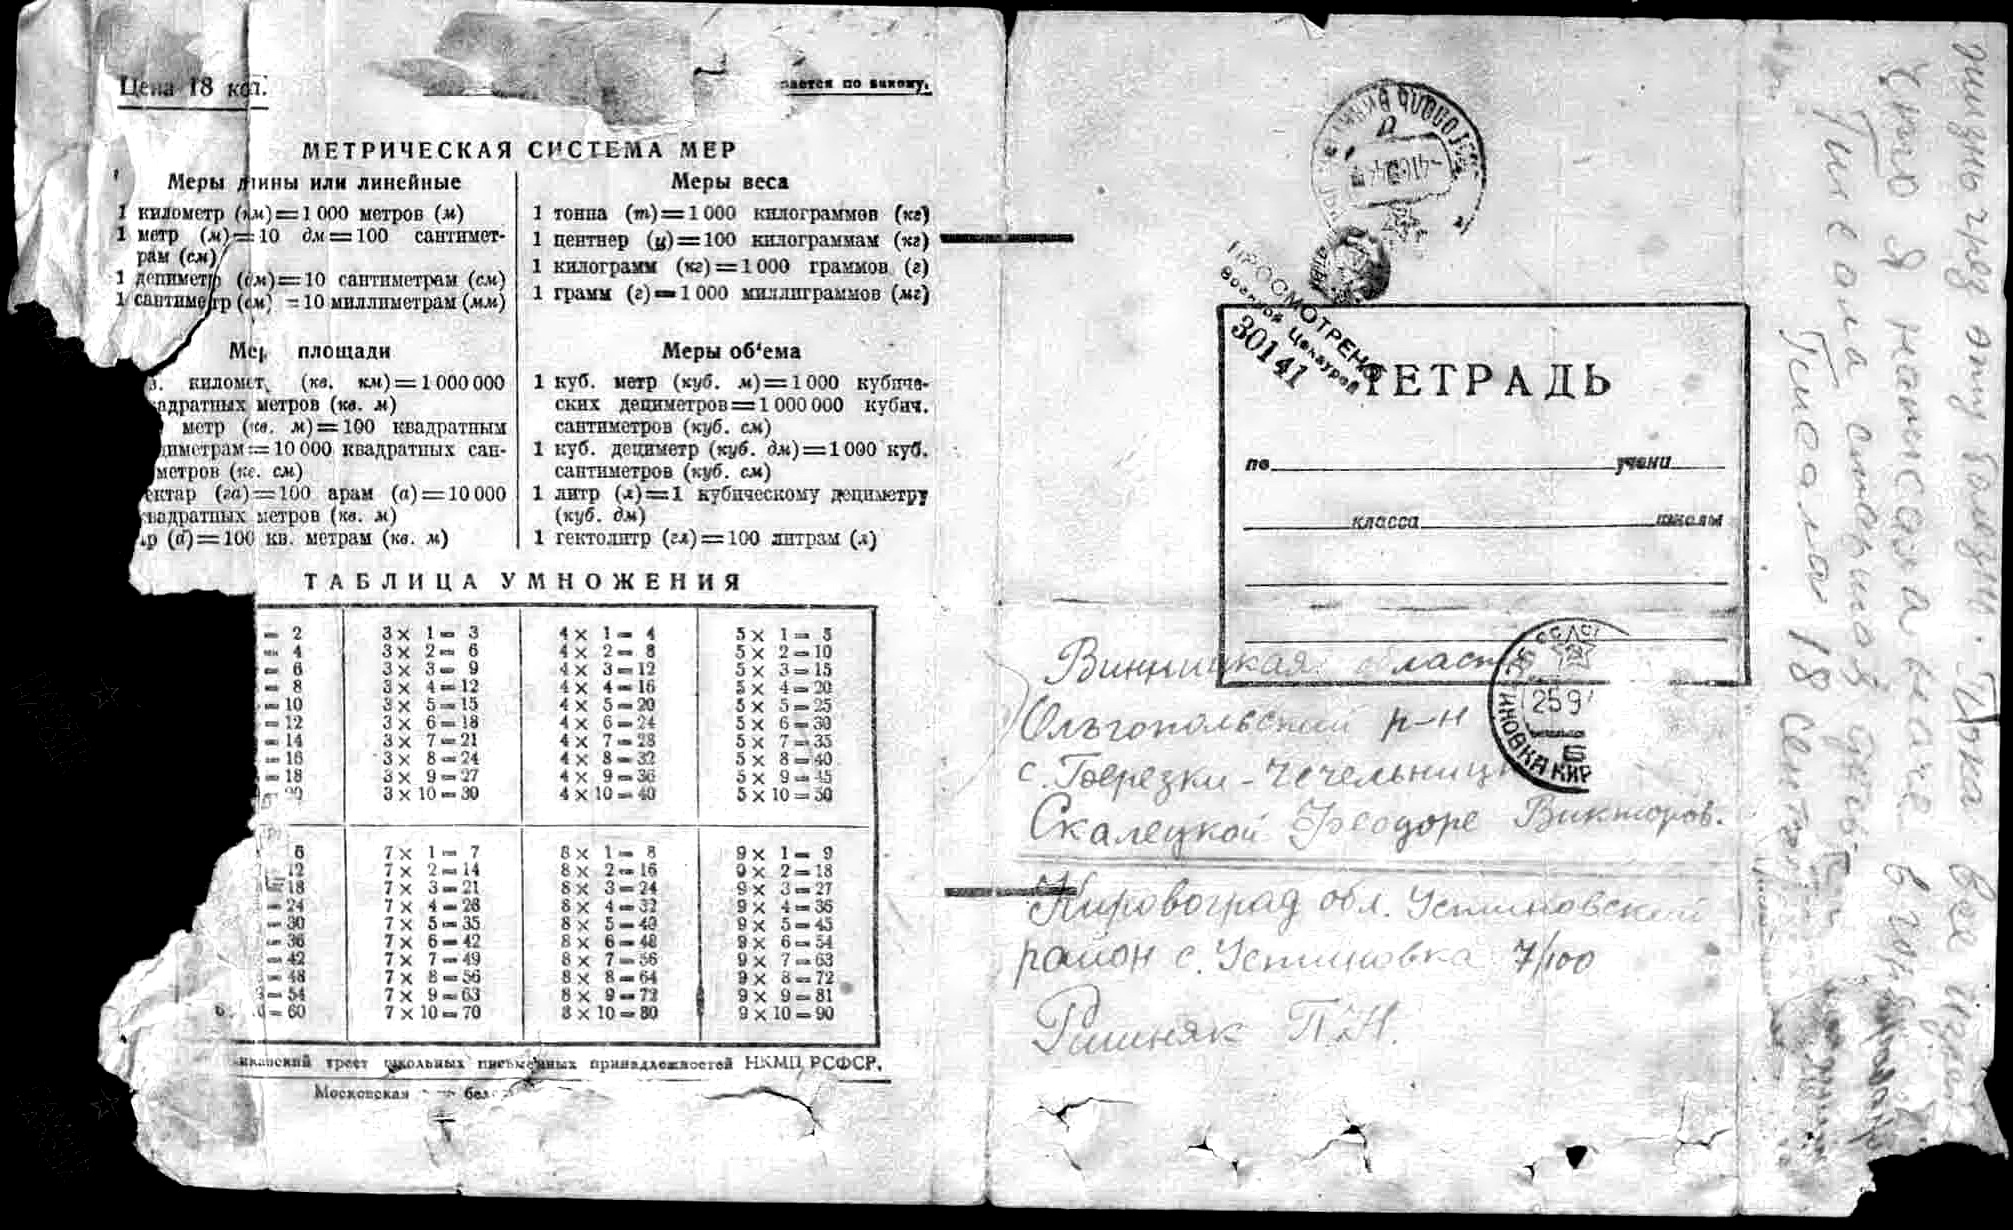 Цена 18 коп.
по закону.
МЕТРИЧЕСКАЯ СИСТЕМА МЕР
Меры длины или линейные
1 километр (км)=1000 метров (м)
1 метр (м)=10 дм=100 сантимет-
рам (см)
1 дециметр (дм)=10 сантиметрам (см)
1 сантиметр (см) =10 миллиметрам (мм)
Меры веса
1 тонна (т)=1000 килограммов (кг)
1 центнер (ц)=100 килограммам (кг)
1 килограмм (кг)=1000 граммов (г)
1 грамм (г)=1000 миллиграммов (мг)
площади
в. километ (кв. км)=1 000 000
адратных метров (кв. м)
метр (кв. м)=100 квадратным
циметрам=10 000 квадратных сан-
метров (кв. см)
ектар (га)=100 арам (а)=10 000
вадратных метров (кв. м)
ар (а)=100 кв. метрам (кв. м)
Меры об‘ема
1 куб. метр (куб. м)=1000 кубиче-
ских дециметров=1 000 000 кубич.
сантиметров (куб. см)
1 куб. дециметр (куб. дм)=1000 куб.
сантиметров (куб. см)
1 литр (л)=1 кубическому дециметру
(куб. дм)
1 гектолитр (гл)=100 литрам (л)
ТАБЛИЦА УМНОЖЕНИЯ
= 2
= 4
= 6
= 8
= 10
= 12
= 14
= 16
= 18
= 20
3 × 1 = 3
3 × 2 = 6
3 × 3 = 9
3 × 4 = 12
3 × 5 = 15
3 × 6 = 18
3 × 7 = 21
3 × 8 = 24
3 × 9 = 27
3 × 10 = 30
4 × 1 = 4
4 × 2 = 8
4 × 3 = 12
4 × 4 = 16
4 × 5 = 20
4 × 6 = 24
4 × 7 = 28
4 × 8 = 32
4 × 9 = 36
4 × 10 = 40
5 × 1 = 5
5 × 2 = 10
5 × 3 = 15
5 × 4 = 20
5 × 5 = 25
5 × 6 = 30
5 × 7 = 35
5 × 8 = 40
5 × 9 = 45
5 × 10 = 50
6
12
= 18
= 24
= 30
= 36
= 42
= 48
= 54
= 60
7 × 1 = 7
7 × 2 = 14
7 × 3 = 21
7 × 4 = 28
7 × 5 = 35
7 × 6 = 42
7 × 7 = 49
7 × 8 = 56
7 × 9 = 63
7 × 10 = 70
8 × 1 = 8
8 × 2 = 16
8 × 3 = 24
8 × 4 = 32
8 × 5 = 40
8 × 6 = 48
8 × 7 = 56
8 × 8 = 64
8 × 9 = 72
8 × 10 = 80
9 × 1 = 9
9 × 2 = 18
9 × 3 = 27
9 × 4 = 36
9 × 5 = 45
9 × 6 = 54
9 × 7 = 63
9 × 8 = 72
9 × 9 = 81
9 × 10 = 90
трест школьных письменных принадлежностей НКМП РСФСР.
Московская
ПРОСМОТРЕНО
Военной Цензурой
30141
ТЕТРАДЬ
по учени
класса школы
259
Б
ИНОВКА КИР
Винницкая область
Ольгопольский р-н
с. Березки-Чечельницк
Скалецкой Феодоре Викторов.
Кировоград обл. Устиновский
район с. Устиновка 7/100
Ришняк П.Н.
Писала 18 Сентяб
Писала
что я написала
эту
Пока все